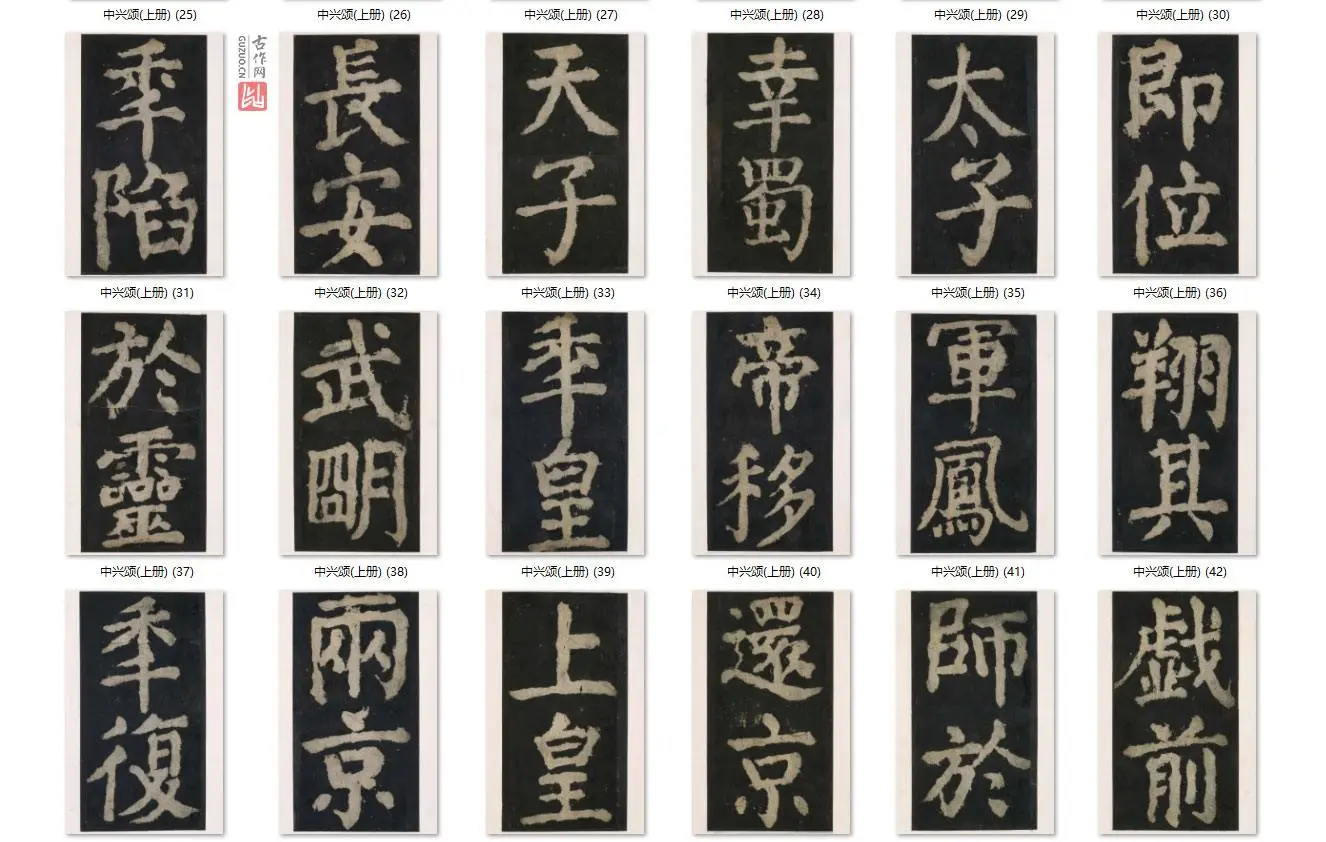 中兴颂(上册) (25)
中兴颂(上册) (26)
中兴颂(上册) (27)
中兴颂(上册) (28)
中兴颂(上册) (29)
中兴颂(上册) (30)
秊陷
古作网
GUZUO.CN
長安
天子
幸蜀
太子
即位
中兴颂(上册) (31)
中兴颂(上册) (32)
中兴颂(上册) (33)
中兴颂(上册) (34)
中兴颂(上册) (35)
中兴颂(上册) (36)
於靈
武朙
秊皇
帝移
軍鳳
翔其
中兴颂(上册) (37)
中兴颂(上册) (38)
中兴颂(上册) (39)
中兴颂(上册) (40)
中兴颂(上册) (41)
中兴颂(上册) (42)
秊復
兩京
上皇
還京
師於
戯前